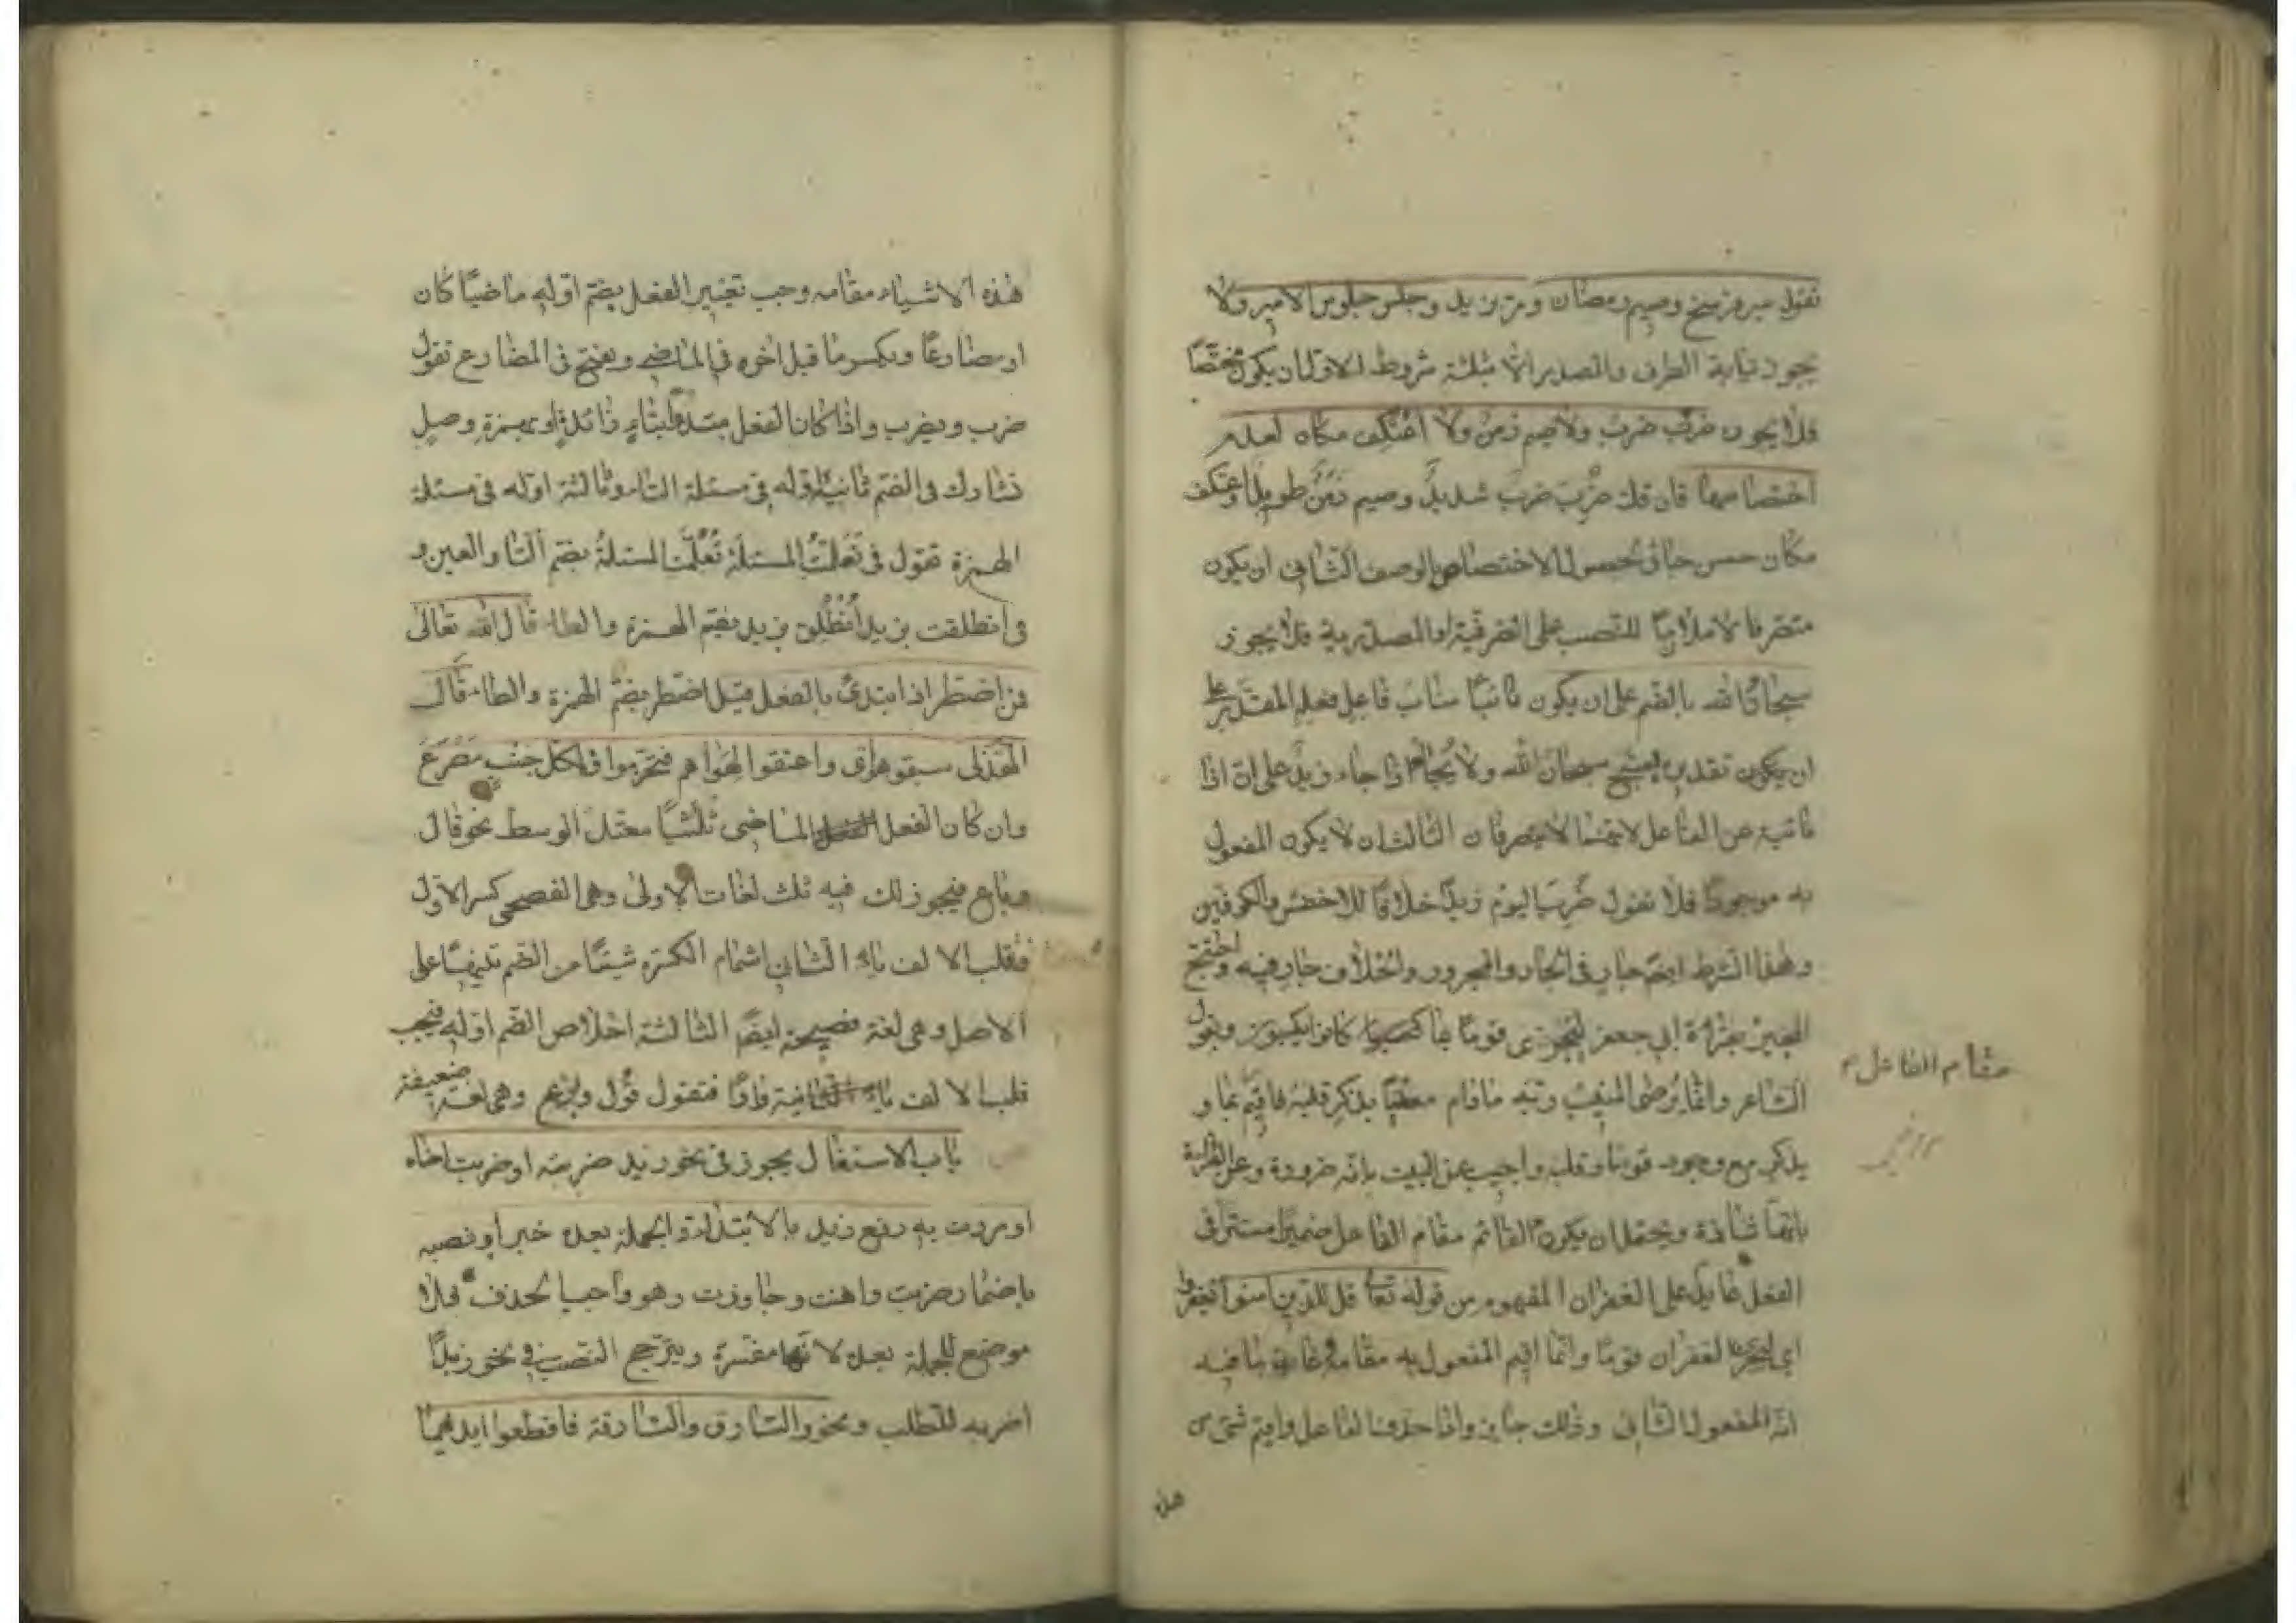 تقول سير فرسخ وصيم رمضان ومر بزيد وجلس جلوس الامير ولا
يجوز نيابة الظرف والمصدر الا بثلثة شروط الاول ان يكون مختصا
فلا يجوز ضرب ضرب ولا صيم زمن ولا اعتكف مكان لعدم
اختصاصها فان قلت ضرب ضرب شديد وصيم زمن طويل واعتكف
مكان حسن جاز لحصول الاختصاص بالوصف الثاني ان يكون
متصرفا لا ملازما للنصب على الظرفية او المصدرية فلا يجوز
سبحان الله بالضم على ان يكون نائبا مناب فاعل فعله المقدر على
ان يكون تقديره يسبح سبحان الله ولا يجاء اذا جاء زيد على ان اذا
نائبة عن الفاعل لانهما لا يتصرفان الثالث ان لا يكون المفعول
به موجودا فلا تقول ضرب اليوم زيدا خلافا للاخفش والكوفيين
وهذا الشرط ايضا جار في الجار والمجرور والخلاف جار فيه واحتج
المجيز بقراءة ابي جعفر ليجزى قوما بما كانوا يكسبون وبقول
الشاعر وانما يرضي المنيب ربه مادام معنيا بذكر قلبه فاقيم بما و
بذكر مع وجود قوما وقلبه واجيب عن البيت بانه ضرورة وعن القراءة
بانها شاذة ويحتمل ان يكون القائم مقام الفاعل ضميرا مستترا في
الفعل عايدا على الغفران المفهوم من قوله تعا قل للذين امنوا يغفروا
اي ليجزى الغفران قوما وانما اقيم المفعول به مقامه غاية ما فيه
انه المفعول الثاني وذلك جايز واذا حذف الفاعل واقيم شئ من
مقام الفاعل م
هذه
هذه الاشياء مقامه وجب تغيير الفعل بضم اوله ماضيا كان
او مضارعا وبكسر ما قبل اخره في الماضي وبفتح في المضارع تقول
ضرب ويضرب واذا كان الفعل مبتدأ بتاء زائدة او بهمزة وصل
تشارك في الضم ثانيه اوله في مسئلة التاء وثالثه اوله في مسئلة
الهمزة تقول في تعلمت المسئلة تعلمت المسئلة بضم التا والعين و
في انطلقت بزيد انطلق بزيد بضم الهمزة والطاء قال الله تعالى
فمن اضطر اذا ابتدئ بالفعل قيل اضطر بضم الهمزة والطاء قال
الهذلي سبقوا هوى واعنقوا لهواهم فتخرموا ولكل جنب مصرع
وان كان الفعل الماضي ثلثيا معتل الوسط نحو قال
وباع فيجوز لك فيه ثلث لغات الاولى وهي الفصحى كسر الاول
فقلب الالف ياء الثاني اشمام الكسرة شيئا من الضم تنبيها على
الاصل وهي لغة فصيحة ايضا الثالثة اخلاص الضم اوله فيجب
قلب الالف واوا فتقول قول وبوع وهي لغة ضعيفة
باب الاشتغال يجوز في نحو زيد ضربته او ضربت اخاه
او مررت به رفع زيد بالابتداء والجملة بعده خبر او نصبه
باضمار ضربت واهنت وجاوزت وهو واجب الحذف فلا
موضع للجملة بعده لانها مفسرة ويترجح النصب في نحو زيدا
اضربه للطلب ونحو والسارق والسارقة فاقطعوا ايديهما